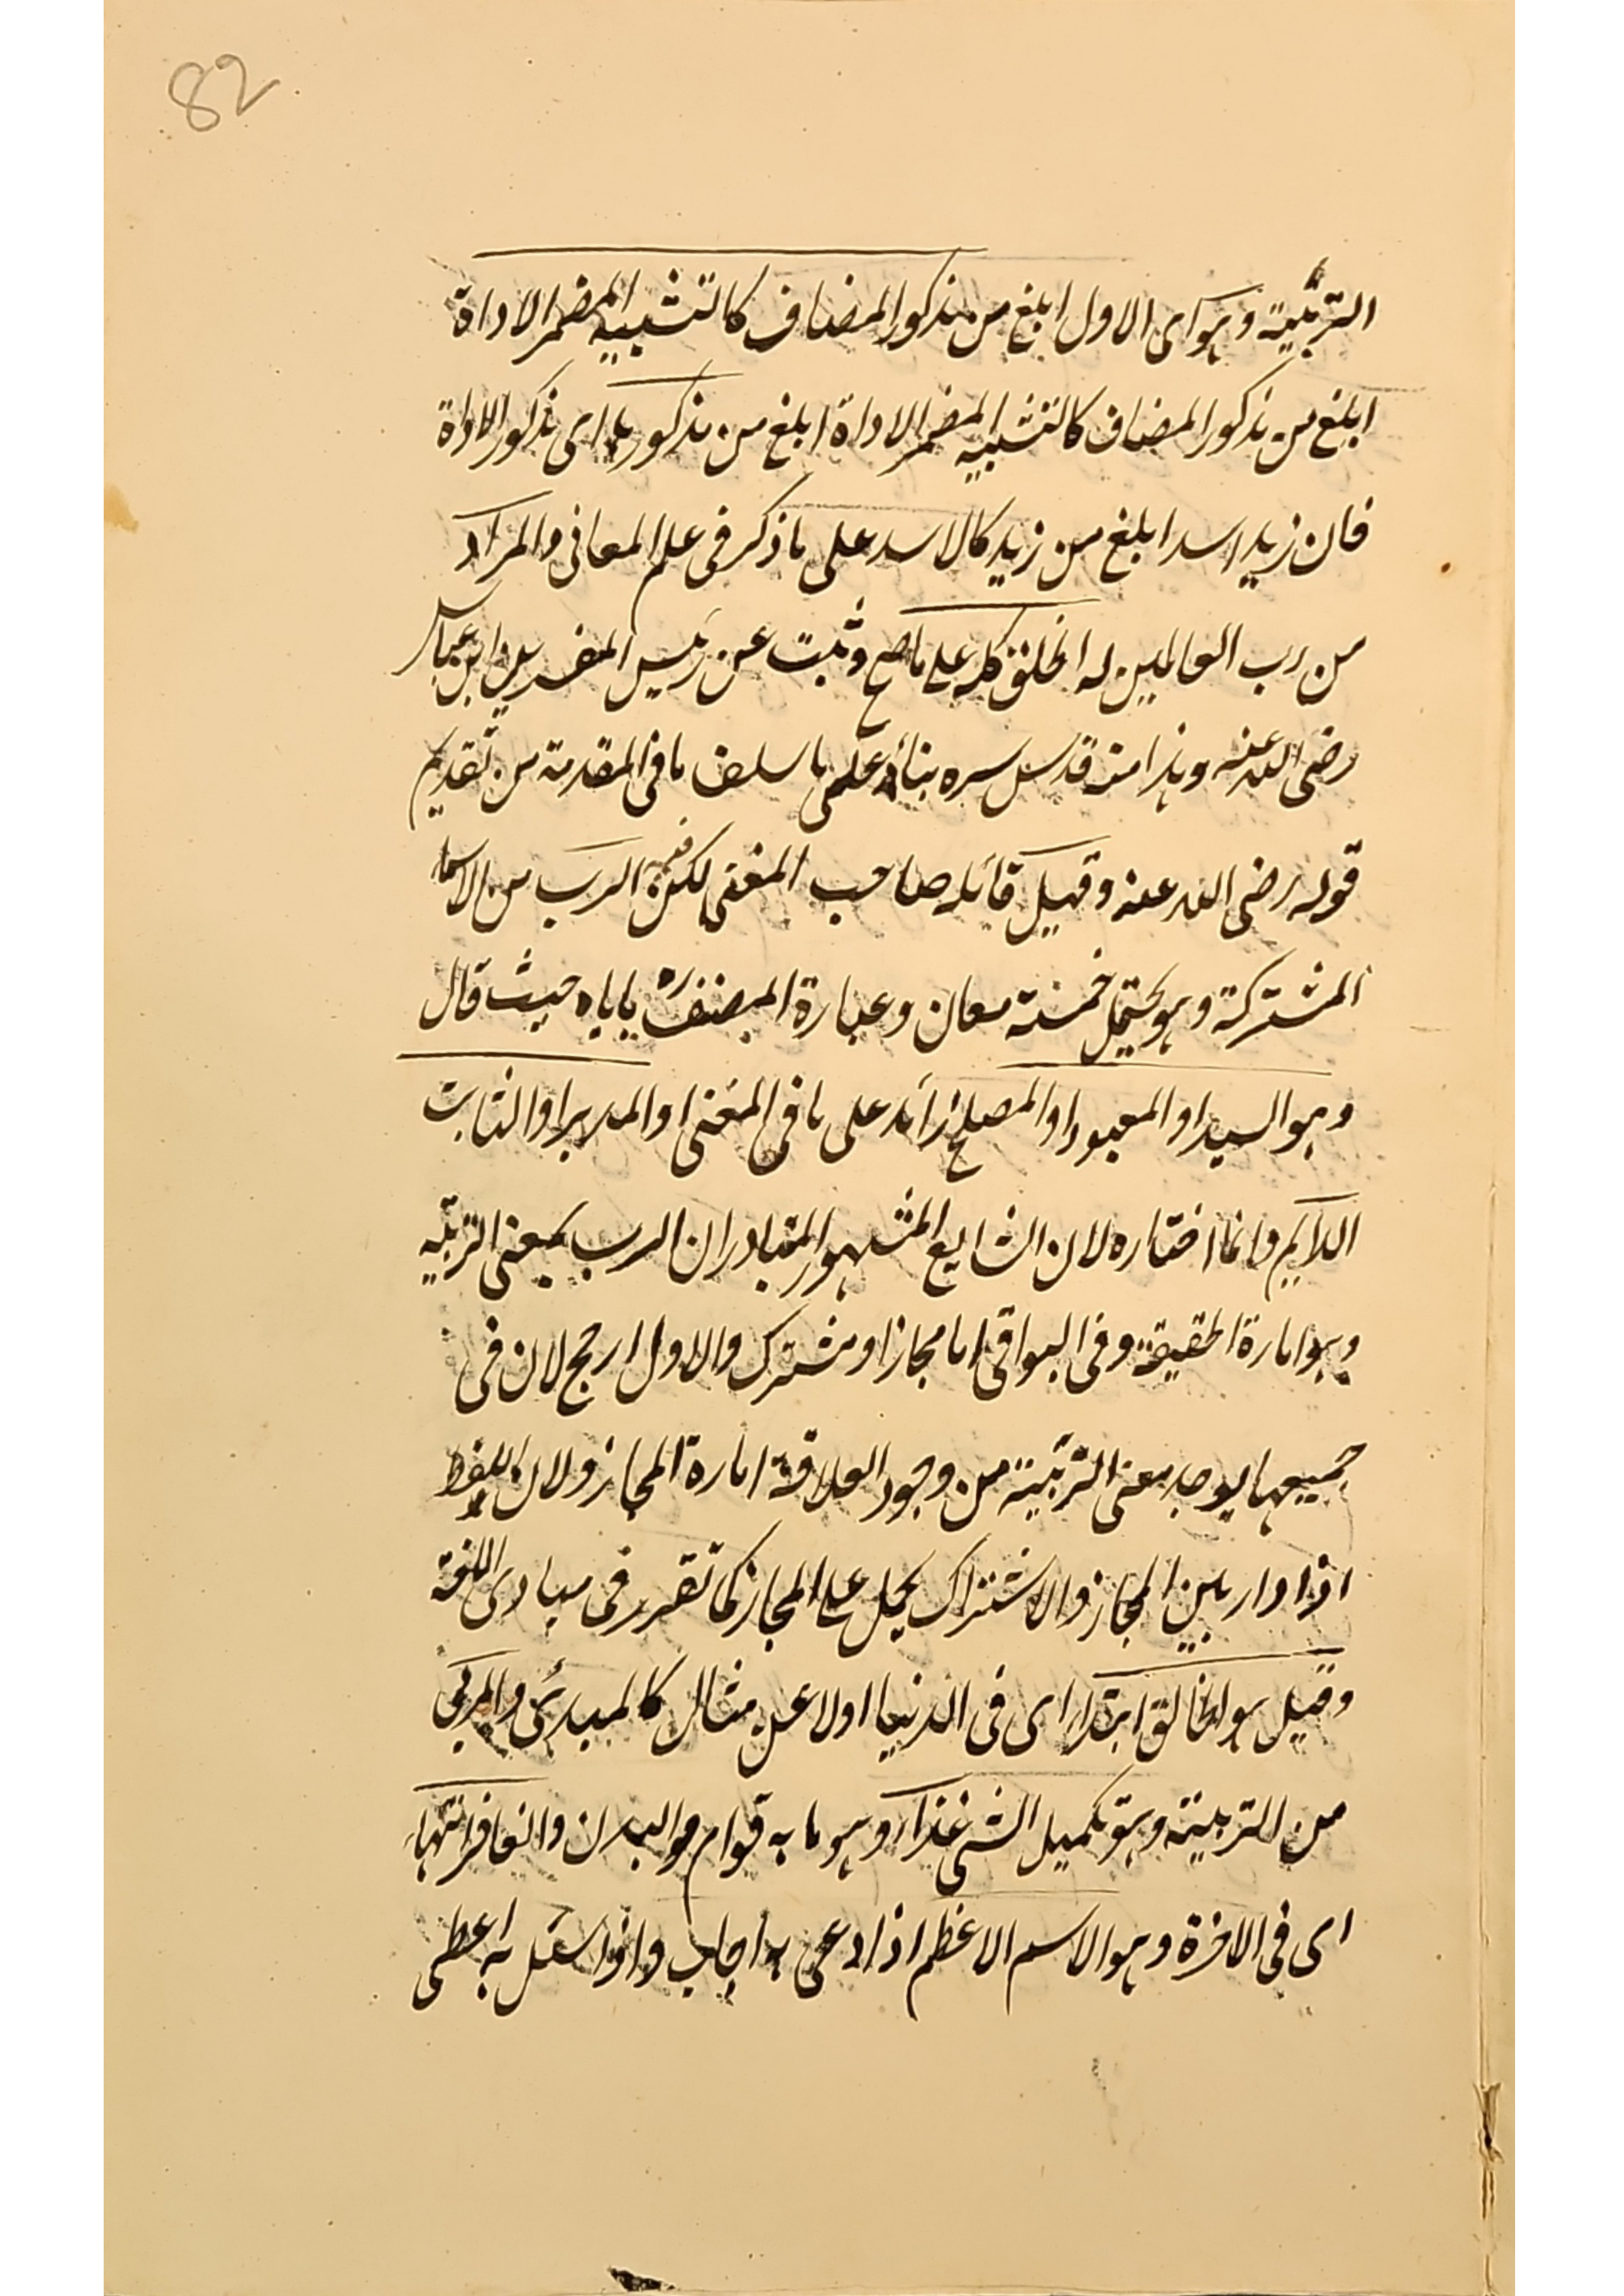 82
التربية وهو اى الاول ابلغ من مذكور المضاف كالتشبيه المضمر الاداة
ابلغ من مذكور المضاف كالتشبيه المضمر الاداة ابلغ من مذكورها اى مذكور الاداة
فان زيد اسد ابلغ من زيد كالاسد على ما ذكر فى علم المعانى والمراد
من رب العالمين له الخلق كله على ما صح وثبت عن رئيس المفسرين ابن عباس
رضى الله عنه وهذا منه قدس سره بناء على ما سلف ما فى المقدمة من تقديم
قوله رضى الله عنه وقيل قائله صاحب المغنى لكن فيه الرب من الاسماء
المشتركة وهو يحتمل خمسة معان وعبارة المصنف ره ياباه حيث قال
وهو السيد او المعبود او المصلح زائد على ما فى المغنى او المدبر او الثابت
الدايم وانما اختاره لان الشايع المشهور المتبادر ان الرب بمعنى التربية
وهو امارة الحقيقة وفى البواقى اما مجاز او مشترك والاول ارجح لان فى
جميعها يوجد معنى التربية من وجود العلاقة امارة المجاز ولان اللفظ
اذا دار بين المجاز والاشتراك يحمل على المجاز كما تقرر فى مبادى اللغة
وقيل هو الخالق ابتداء اى فى الدنيا اولا على مثال كالمبدئ والمربى
من التربية وهو تكميل الشى غذاء وهو ما به قوام البدن والغافر انتهاء
اى فى الاخرة وهو الاسم الاعظم اذا دعى به اجاب واذا سئل به اعطى